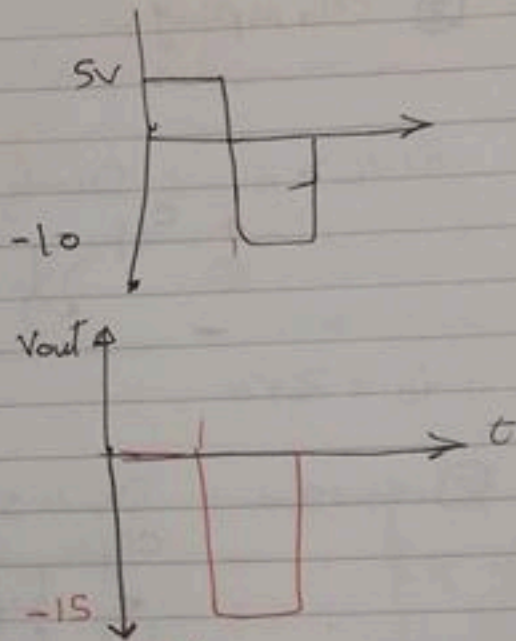 5V
-10
Vout
t
-15